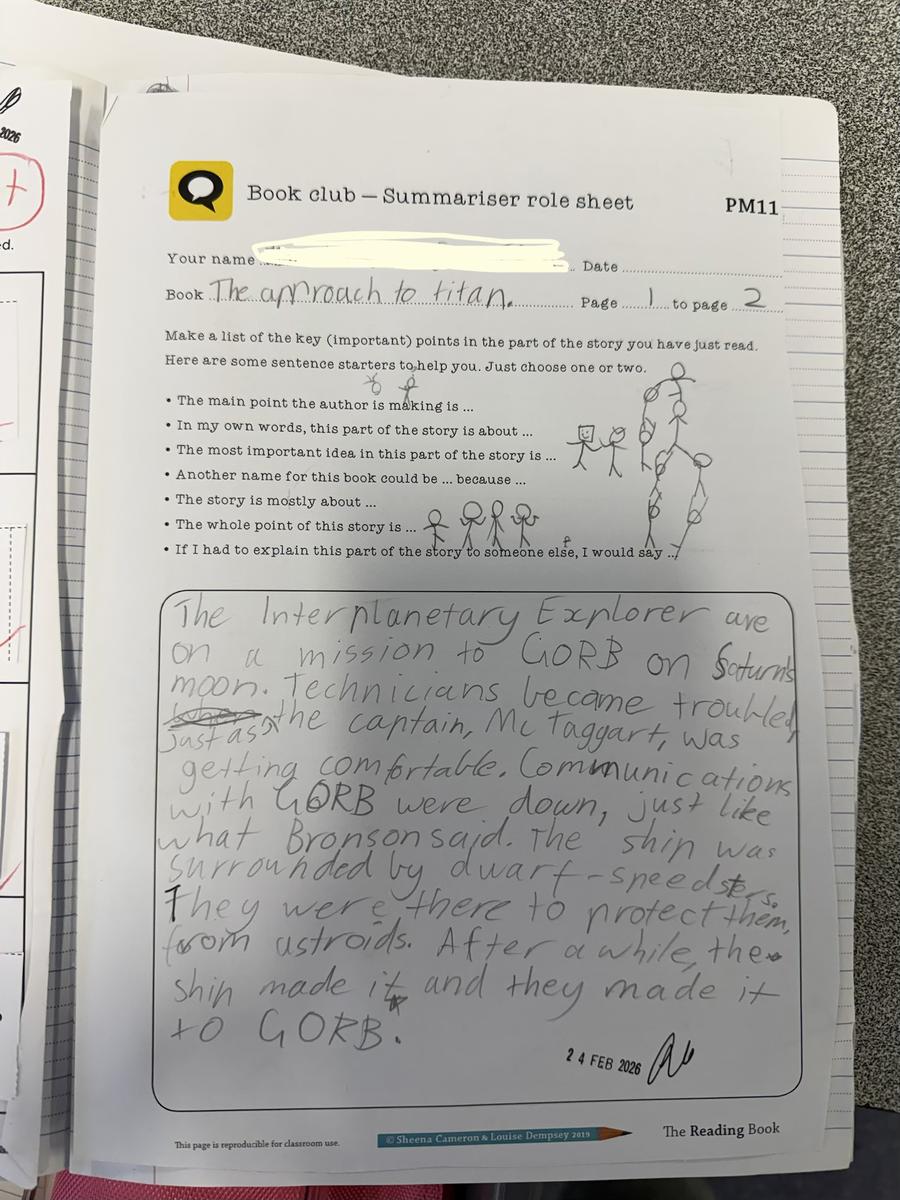 2026
+
ed.
Book club – Summariser role sheet
PM11
Your name
Date
Book The approach to titan.
Page 1 to page 2
Make a list of the key (important) points in the part of the story you have just read.
Here are some sentence starters to help you. Just choose one or two.
• The main point the author is making is ...
• In my own words, this part of the story is about ...
• The most important idea in this part of the story is ...
• Another name for this book could be ... because ...
• The story is mostly about ...
• The whole point of this story is ...
• If I had to explain this part of the story to someone else, I would say ...
The Interplanetary Explorer are
on a mission to GORB on Saturn's
moon. Technicians became troubled,
just as the captain, Mc Taggart, was
getting comfortable. Communications
with GORB were down, just like
what Bronson said. The ship was
surrounded by dwarf-speedsters.
They were there to protect them,
from astroids. After a while, the
ship made it and they made it
to GORB.
24 FEB 2026
This page is reproducible for classroom use.
© Sheena Cameron & Louise Dempsey 2019
The Reading Book